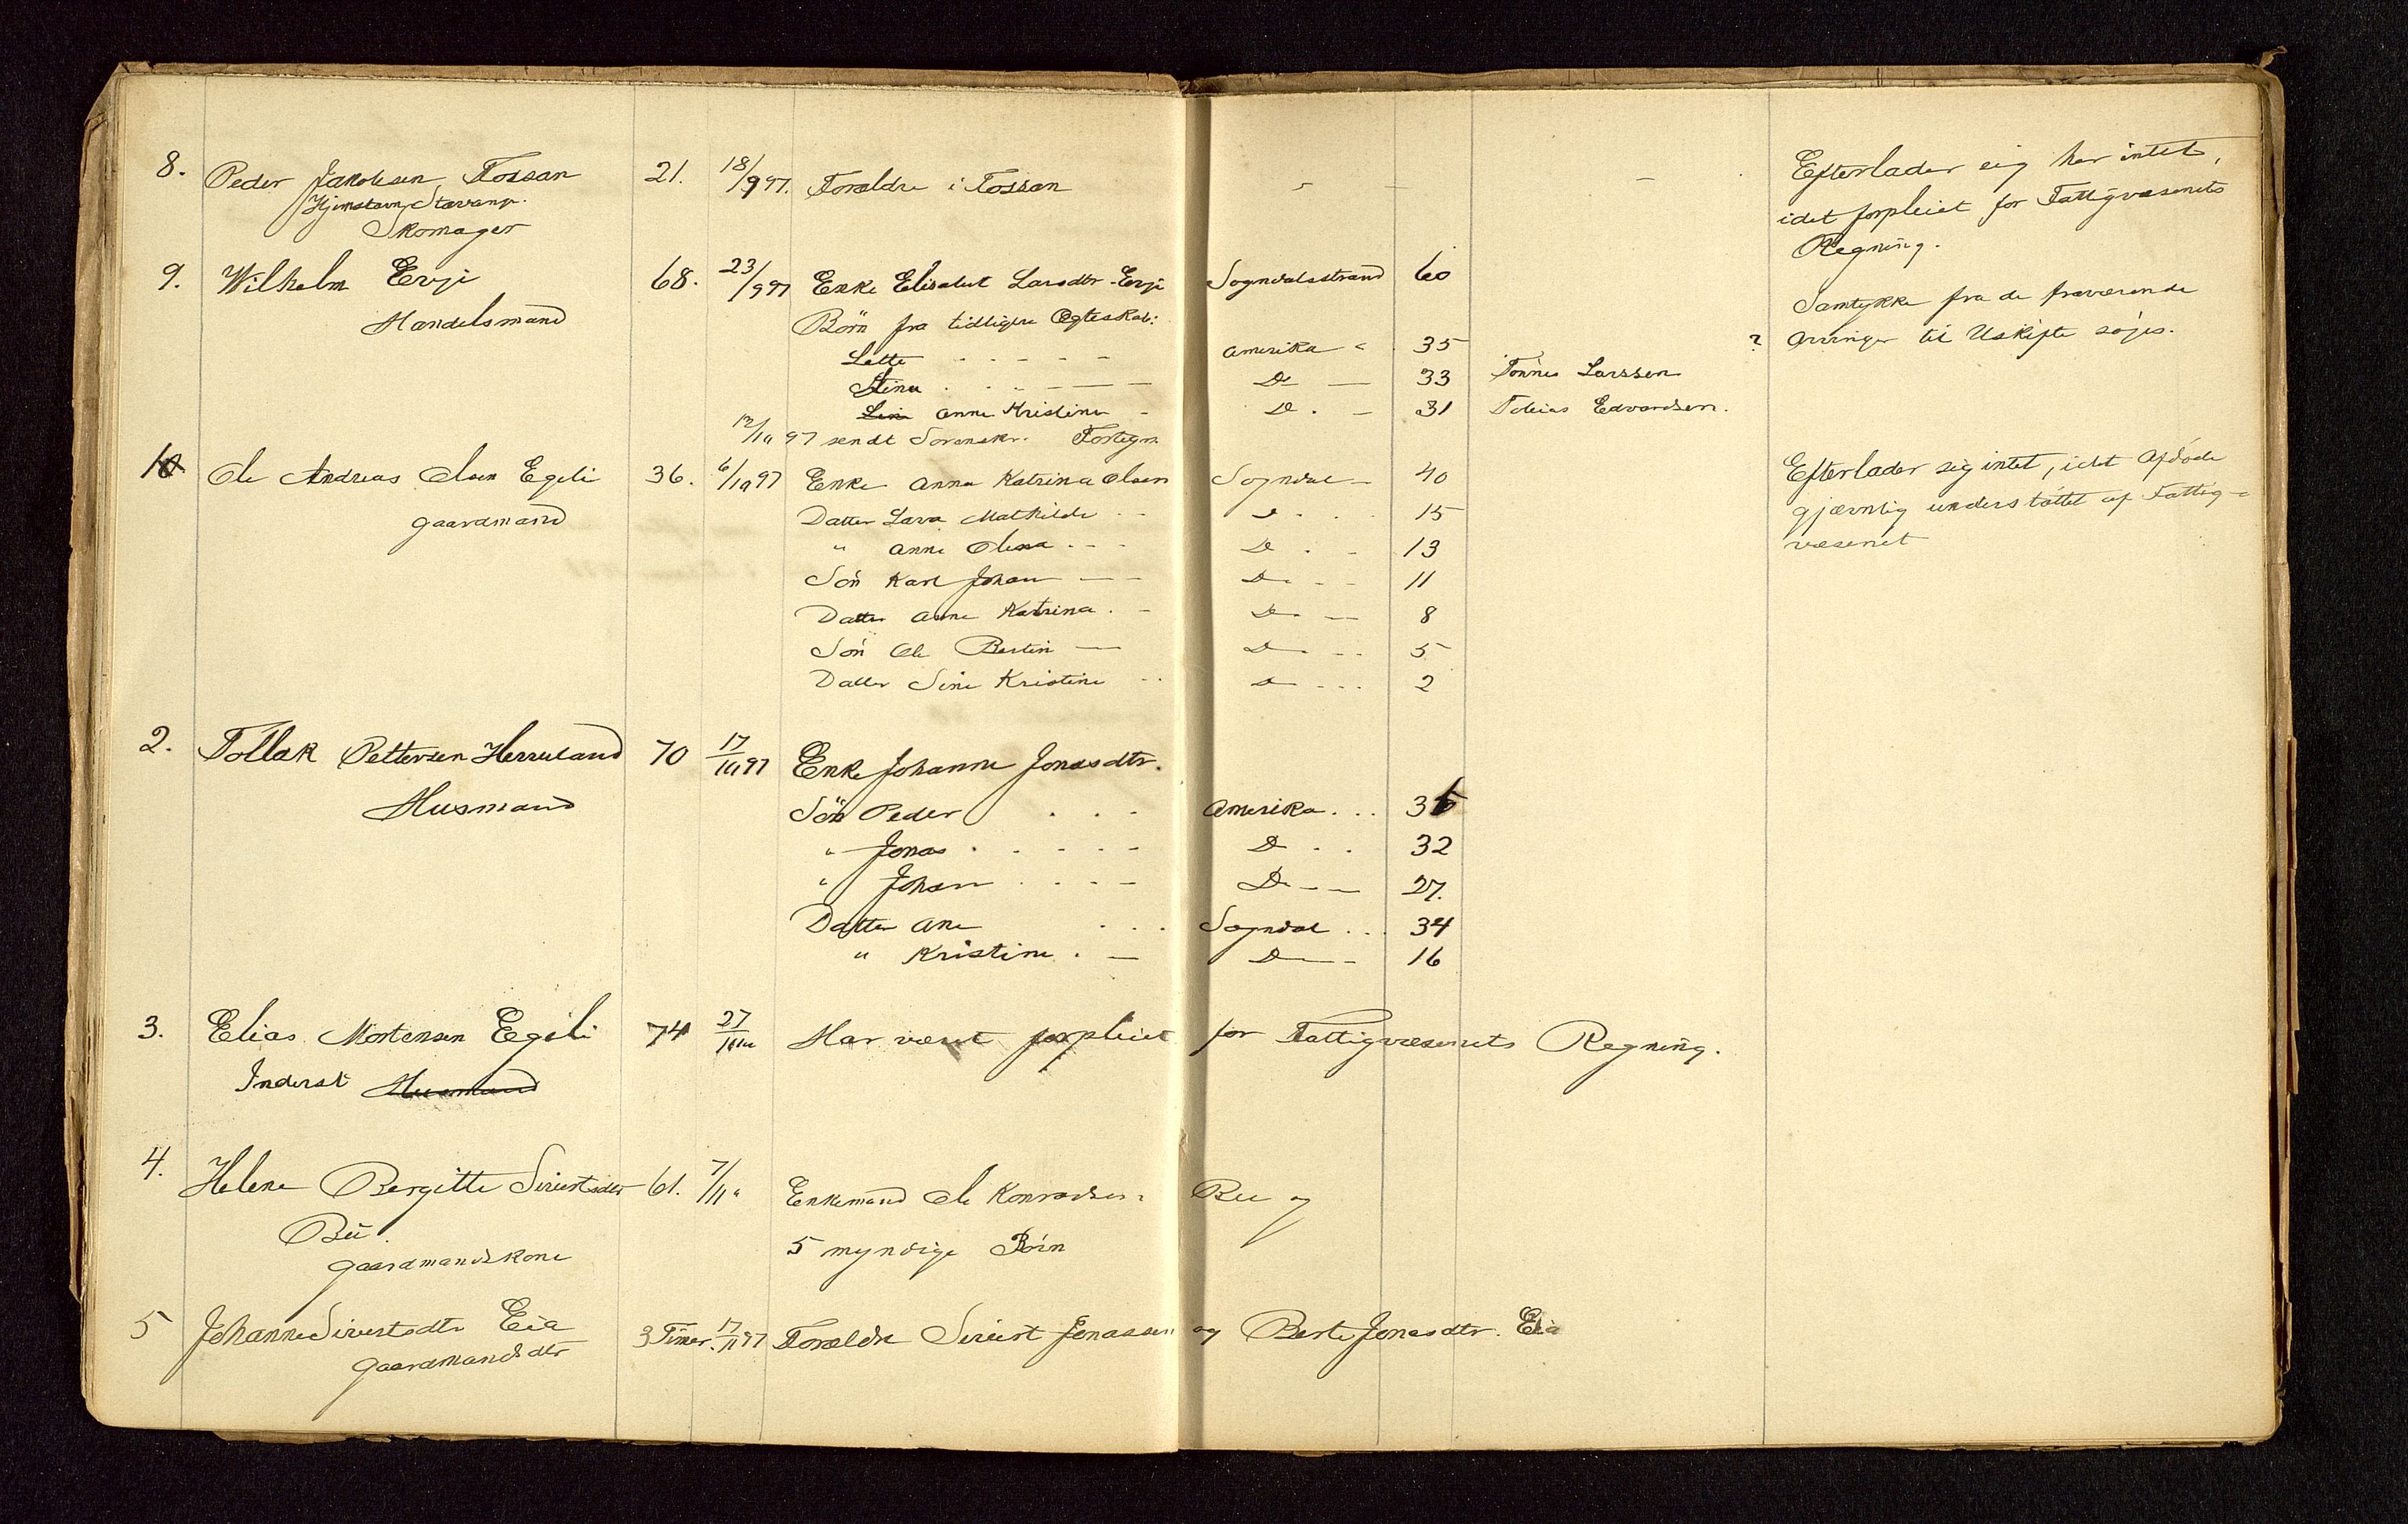 8. Peder Jakobsen Fossan 21. 18/9 97. Forældre i Fossan - - - Efterlader sig her intet,
Hjemstavn Stavang. idet forpleiet for Fattigvæsenets
Skomager Regning.
9. Wilhelm Ervji 68. 23/9 97 Enke Elisabet Larsdtr. Ervji Sogndalsstrand 60
Handelsmand Börn fra tidligere Ægteskab: Samtykke fra de fraværende
Lette - - - - - Amerika " 35 ? Arvinger til Uskifte søges.
Stina - - - - - Do - 33 Tönnes Larssen
Lin Anne Kristine - Do . - 31 Tobias Edvardsen.
12/10 97 sendt Sorenskr. Fortegn
10 Ole Andreas Olsen Egeli 36. 6/10 97 Enke Anna Katrina Olsen Sogndal - 40 Efterlader sig intet, idet Afdöde
gaardmand Datter Lava Mathilde - - Do . . . 15 gjævnlig understöttet af Fattig-
" Anne Olena - - - Do . - 13 væsenet
Sön Karl Johan - - Do - - 11
Datter Anne Katrina . - Do - - 8
Sön Ole Bertin - Do - - 5
Datter Sine Kristine - - Do - - - 2
2. Tollak Pettersen Herreland 70 17/10 97 Enke Johanne Jonasdtr.
Husmand Sön Peder . . . Amerika . . . 36
" Jonas . . . . . Do . . 32
" Johan . . . . Do - - 27.
Datter Ane . . . Sogndal . . . 34
" Kristine . - Do - - 16
3. Elias Mortensen Egeli 74 27/10 " Har været forpleiet for Fattigvæsenets Regning.
Inderst Husmand
4. Helene Bergitte Sivertsdtr 61. 7/11 " Enkemand Ole Konradsen Bu og
Bu. 5 myndige Börn
gaardmandskone
5 Johanne Sivertsdtr Eia 3 Timer. 17/11 97 Forældre Sivert Jonassen og Berte Jonasdtr. Eia
gaardmandsdtr